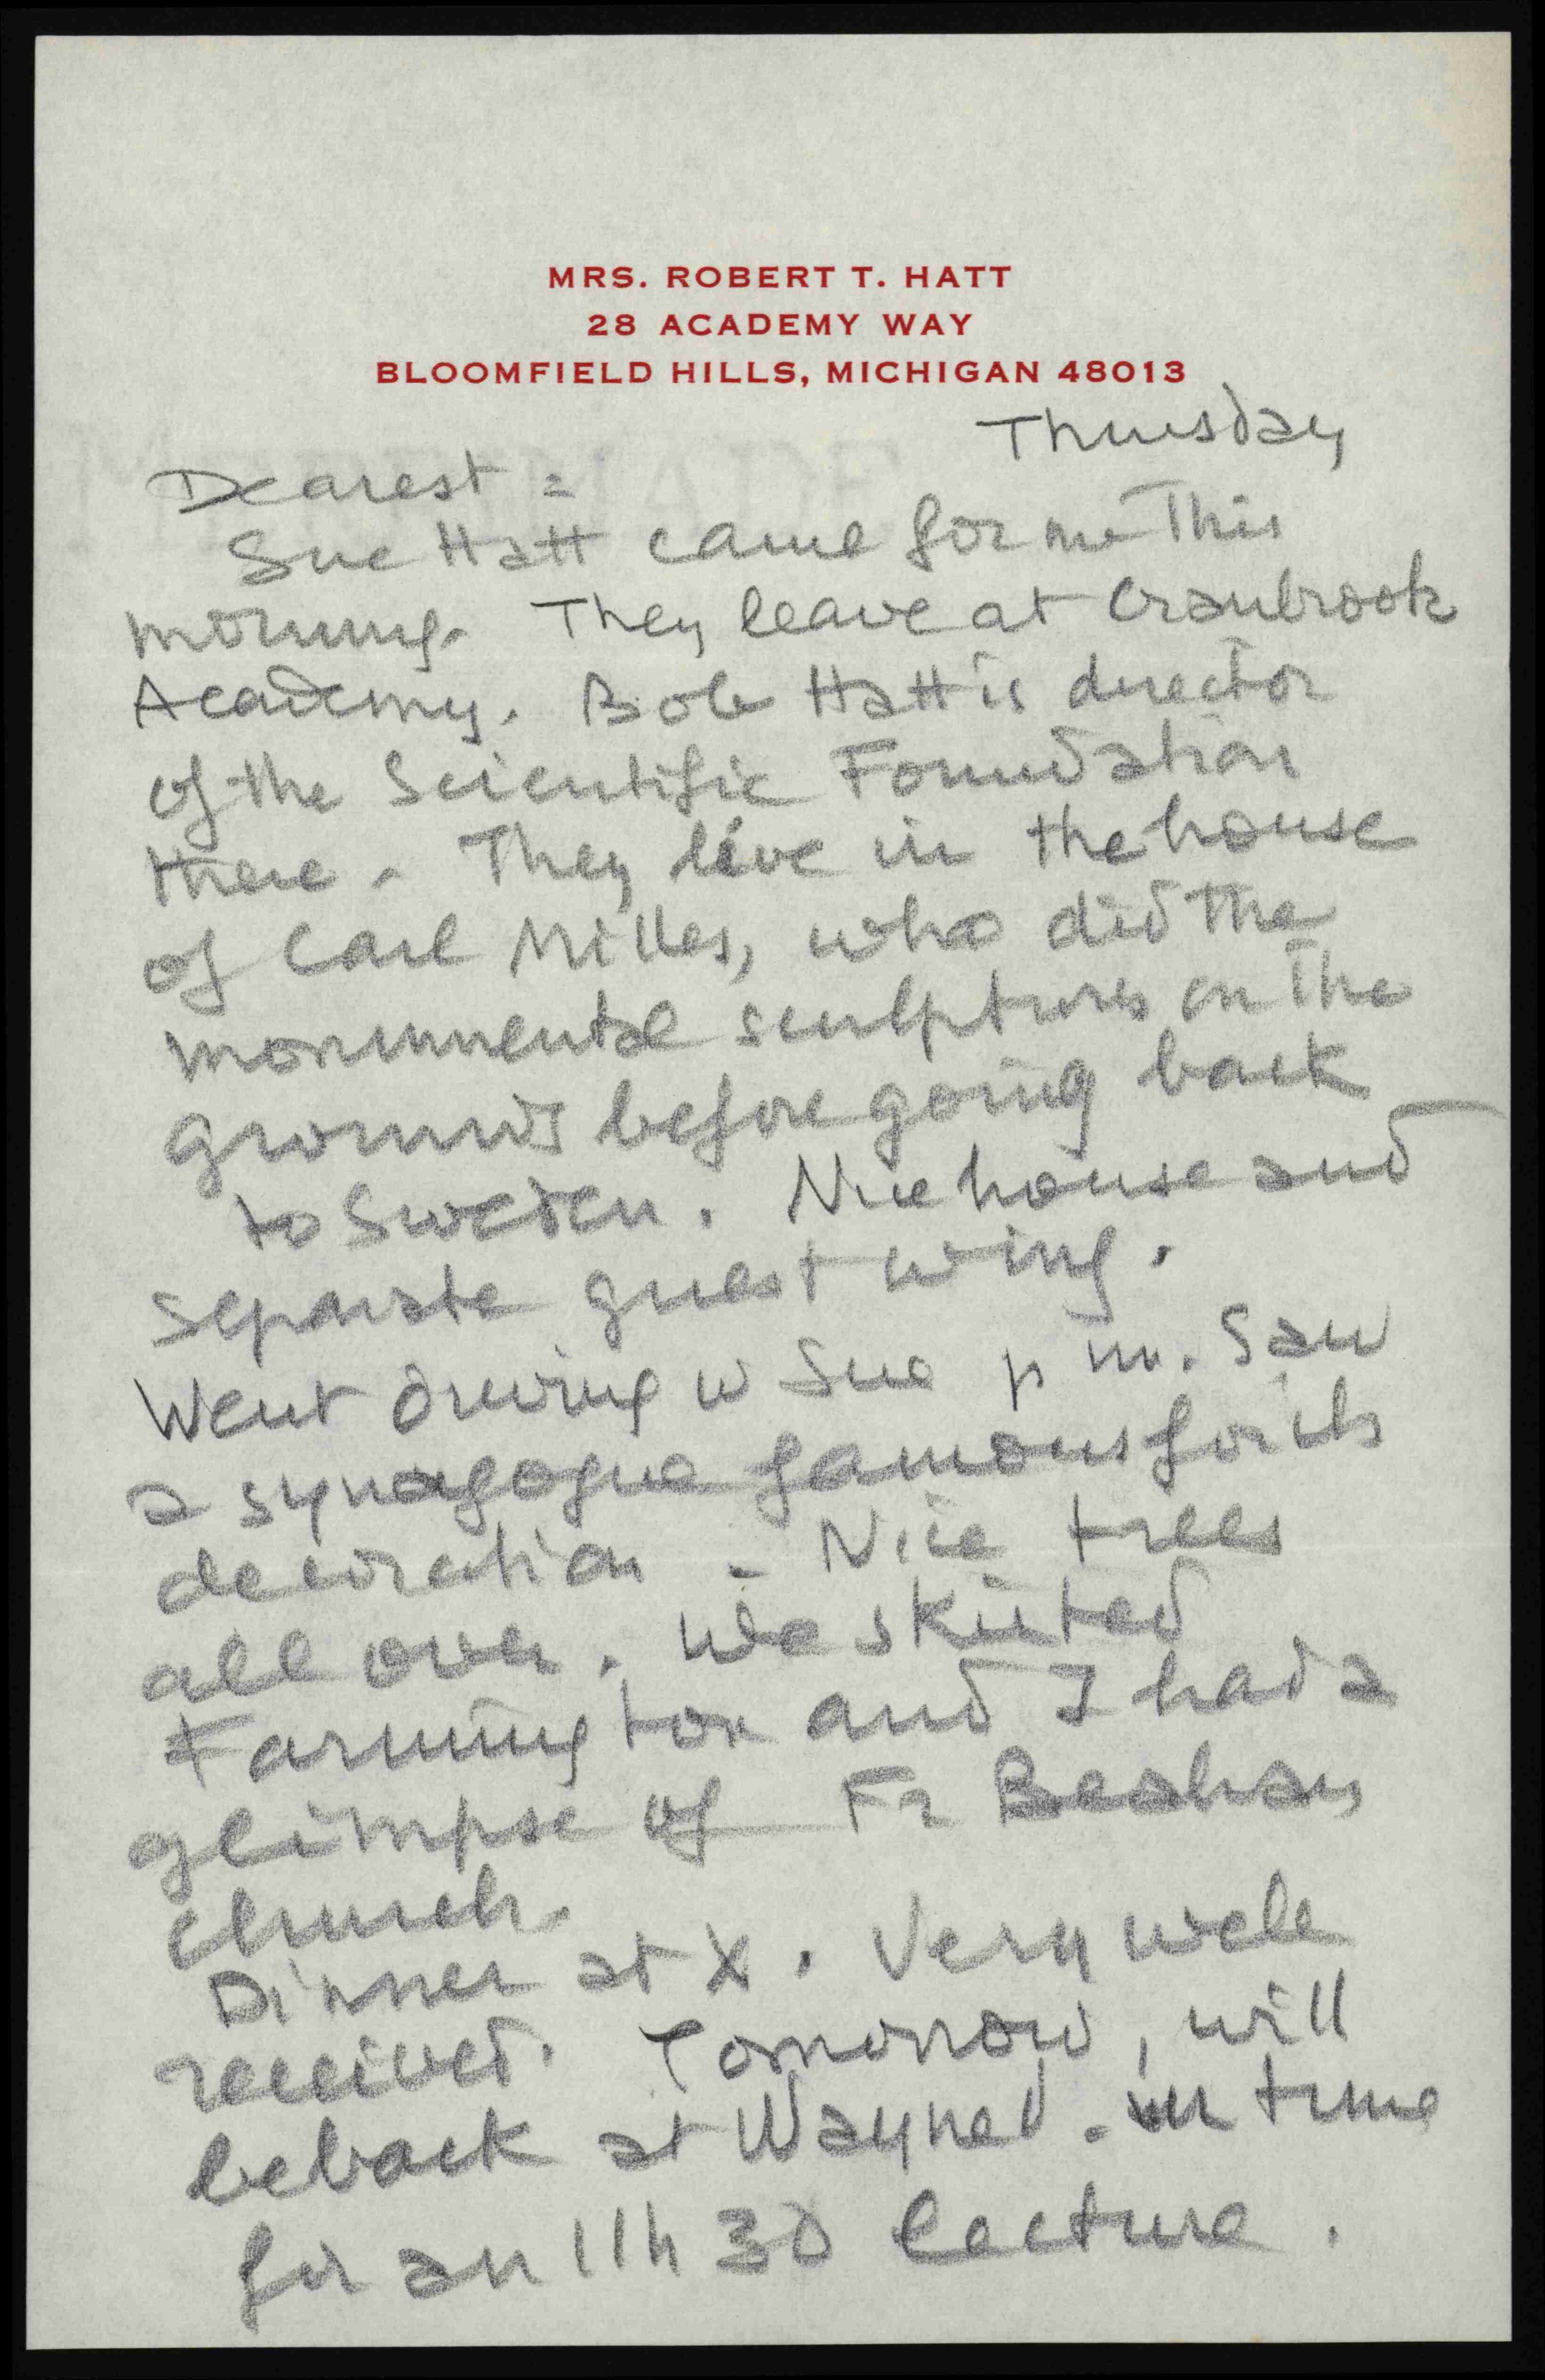 MRS. ROBERT T. HATT
28 ACADEMY WAY
BLOOMFIELD HILLS, MICHIGAN 48013
Thursday
Dearest =
Sue Hatt came for me This
morning. They leave at Cranbrook
Academy. Bob Hatt is director
of the Scientific Foundation
there. They live in the house
of Carl Milles, who did the
monumental sculptures on The
grounds before going back
to Sweden. Nice house and
separate guest wing.
Went driving w Sue p m. Saw
a synagogue famous for its
decoration. Nice trees
all over. We skirted
Farmington and I had a
glimpse of Fr Beahan
church.
Dinner at X. Very well
received. Tomorrow, will
be back at Wayne U. in time
for an 11h 30 lecture.